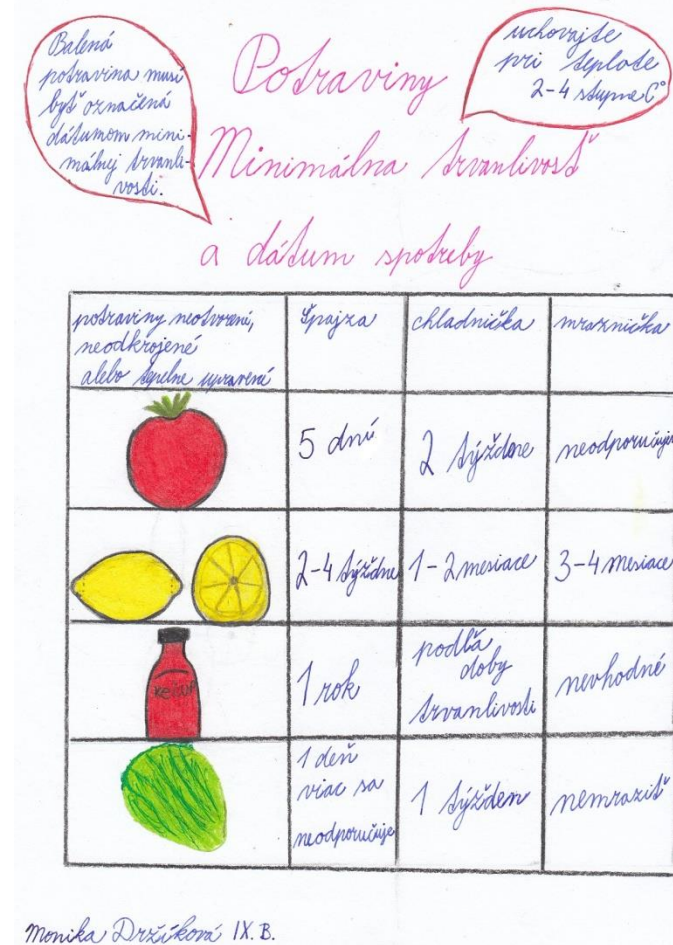 Balená
potravina musí
byť označená
dátumom mini-
málnej trvanli-
vosti.
uchovajte
pri teplote
2-4 stupne C°
Potraviny
Minimálna trvanlivosť
a dátum spotreby
potraviny neotvorené,
neodkrojené
alebo tepelne upravené
špajza
chladnička
mraznička
5 dní
2 týždne
neodporučuje
2-4 týždne
1-2 mesiace
3-4 mesiace
KEČUP
1 rok
podľa
doby
trvanlivosti
nevhodné
1 deň
viac sa
neodporučuje
1 týžden
nemraziť
Monika Držíková IX. B.